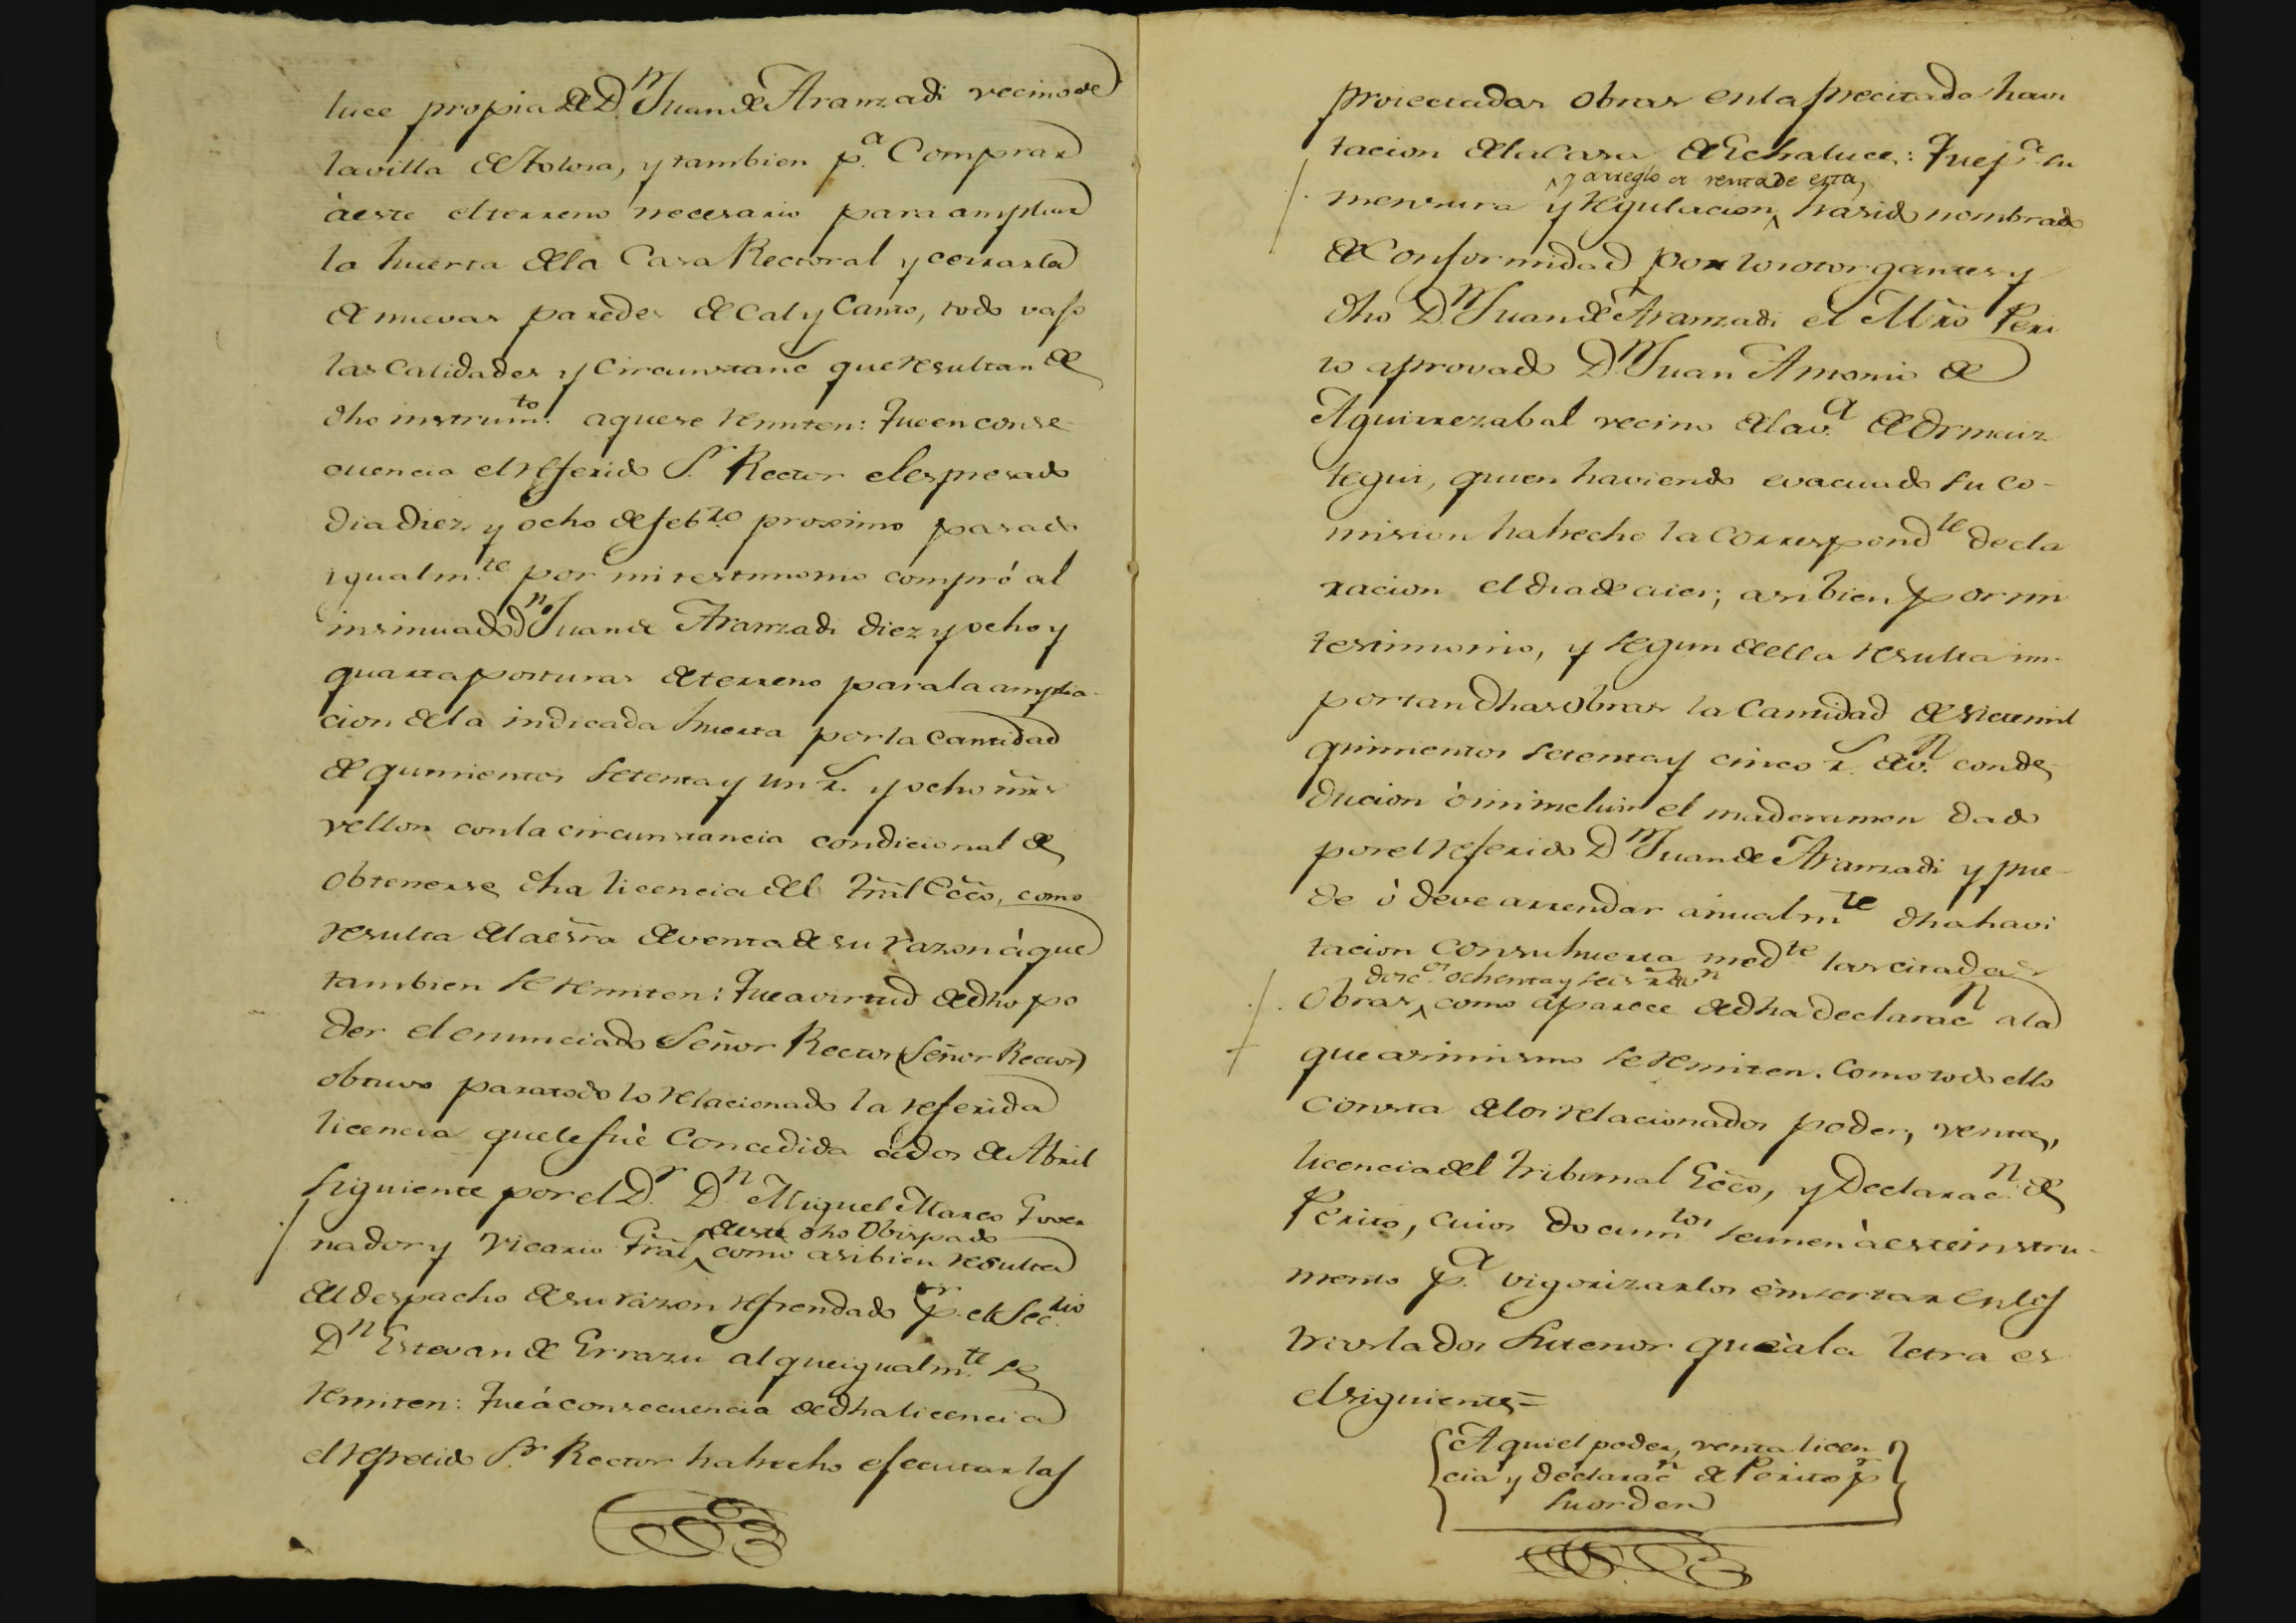 luce propia de D.n Juan de Aranzadi vecino de
la villa de Tolosa, y tambien p.a Comprar
à este el terreno necesario para ampliar
la huerta de la Casa Rectoral y cerrarla
de nuevas paredes de Cal y Canto, todo vajo
las Calidades y Circunstanc que resultan de
dho instrum.to a que se remiten: Que en conse-
cuencia el referido S.r Rector el espresado
dia diez y ocho de feb.ro proximo pasado
igualm.te por mi testimonio compró al
insinuado d.n Juan de Aranzadi diez y ocho y
quarta posturas de terreno para la amplia-
cion de la indicada huerta por la Cantidad
de quinientos setenta y un r.s y ocho mrs
vellon con la circunstancia condicional de
obtenerse dha licencia del Trral Ecco, como
resulta de la esra de venta de su razon à que
tambien se remiten: Que a virtud de dho po
der el enunciado Señor Rector (Señor Rector)
obtuvo para todo lo relacionado la referida
licencia que le fuè Concedida à dos de Abril
siguiente por el D.r D.n Miguel Marco Gover
nador y Vicario Gral ^ de este dho Obispado
como asibien resulta
del despacho de su razon refrendado p.r el Sec.rio
D.n Estevan de Errazu al que igualm.te se
remiten: Que à consecuencia de dha licencia
el repetido S.r Rector ha hecho efecutar las
proiectadas obras en la precitada havi
tacion de la Casa de Echaluce: Que p.a su
^ y arreglo de renta de esta,
mensura y regulacion ^ ha sido nombrado
de Conformidad por los otorgantes y
dho D.n Juan de Aranzadi el Mro Peri
to aprovado D.n Juan Antonio de
Aguirrezabal vecino de la v.a de Ormaiz
tegui, quien haviendo evacuado su co-
mision ha hecho la correspond.te decla
racion el dia de aier, asibien por mi
testimonio, y segun de ella resulta im-
portan dhas obras la Cantidad de siete mil
quinientos setenta y cinco r.s de v.n con de
ducion ò sin incluir el maderamen dado
por el referido D.n Juan de Aranzadi y pue-
de ò deve arrendar anualm.te dha havi
tacion con su huerta med.te las citadas
dosc.s ochenta y seis r.s de v.n
obras ^ como aparece de dha declarac.n a la
que asimismo se remiten. Como todo ello
consta de los relacionados poder, venta,
licencia del Tribunal Ecco, y Declarac.n de
Perito, cuios docum.tos se unen à este instru-
mento p.a vigorizarlos è insertar en los
traslados su tenor que à la letra es
el siguiente =
Aqui el poder, venta licen
cia y declarac.n de Perito p.r
su orden